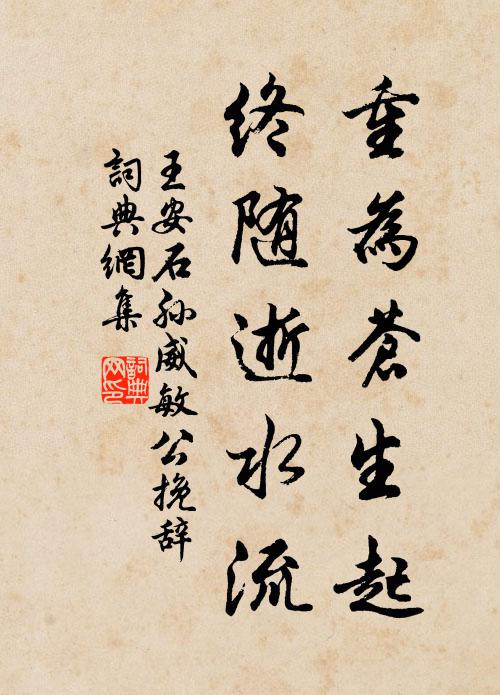 重為蒼生起
終随逝水流
王安石孙威敏公挽辞
詞典網集
詞典
网印